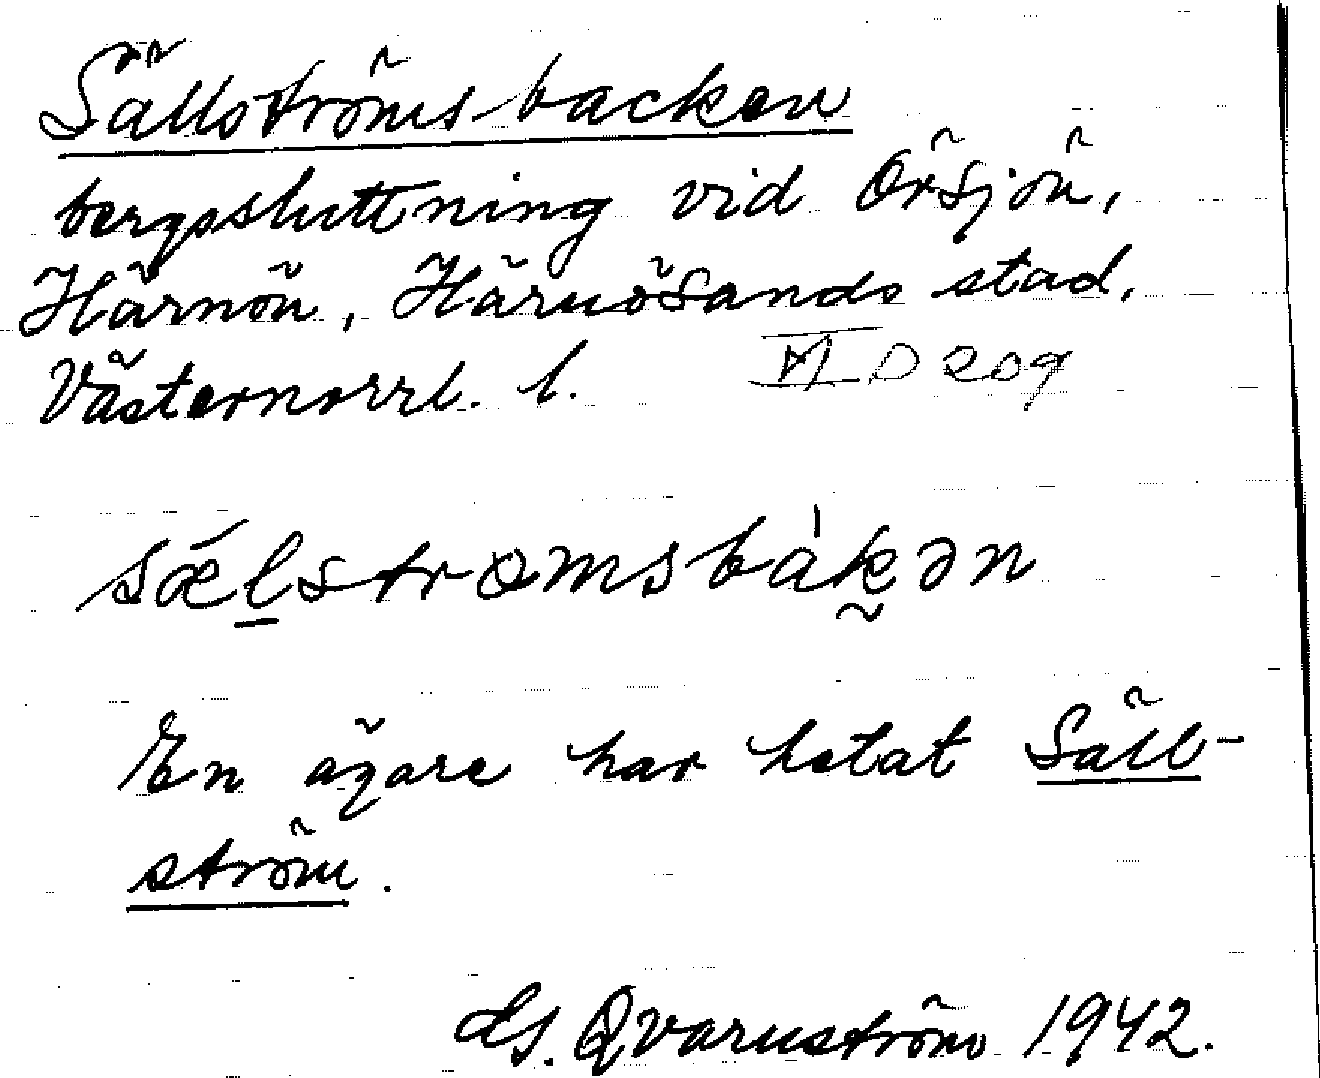 Sällströmsbacken
bergssluttning vid Örsjön,
Härnön, Härnösands stad,
Västernorrl. l. VI D 209
sǽl̲strømsbàk̰ən
En ägare har hetat Säll-
ström.
Qvarnström 1942.